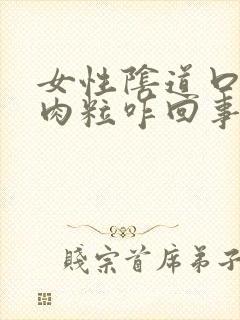 女性陰道口
肉粒咋回事
賤宗首席弟子